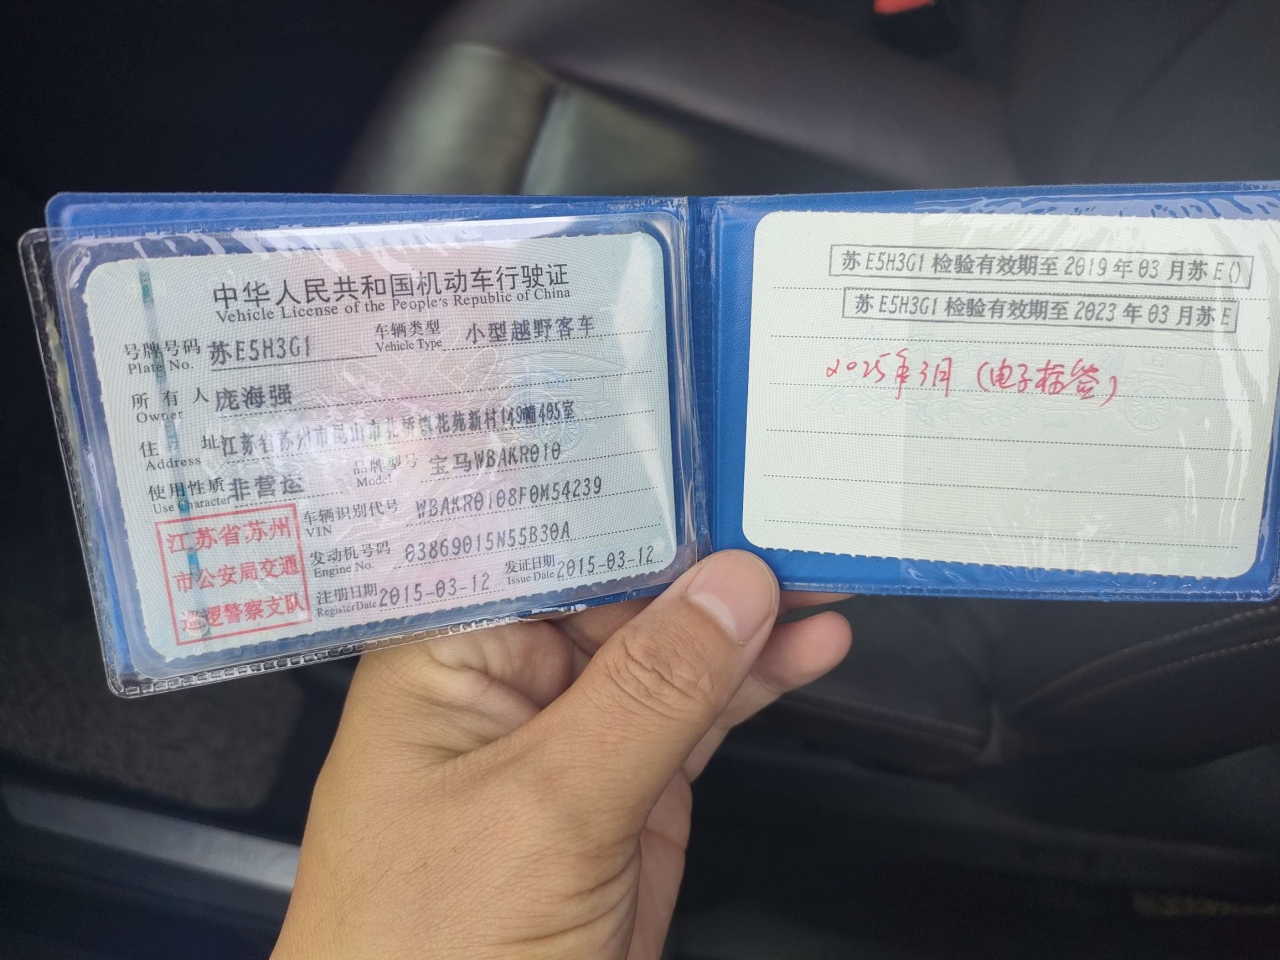 中华人民共和国机动车行驶证
Vehicle License of the People's Republic of China
号牌号码 Plate No. 苏E5H3G1 车辆类型 Vehicle Type 小型越野客车
所有人 Owner 庞海强
住址 Address 江苏省苏州市昆山市花桥 花苑新村149幢405室
使用性质 Use Character 非营运 品牌型号 Model 宝马WBAKR010
车辆识别代号 VIN WBAKR0108F0M54239
发动机号码 Engine No. 03869015N55B30A
注册日期 Register Date 2015-03-12 发证日期 Issue Date 2015-03-12
江苏省苏州
市公安局交通
巡逻警察支队
苏E5H3G1 检验有效期至 2019 年 03 月苏 E()
苏E5H3G1 检验有效期至 2023 年 03 月苏 E
2025年3月 (电子标签)